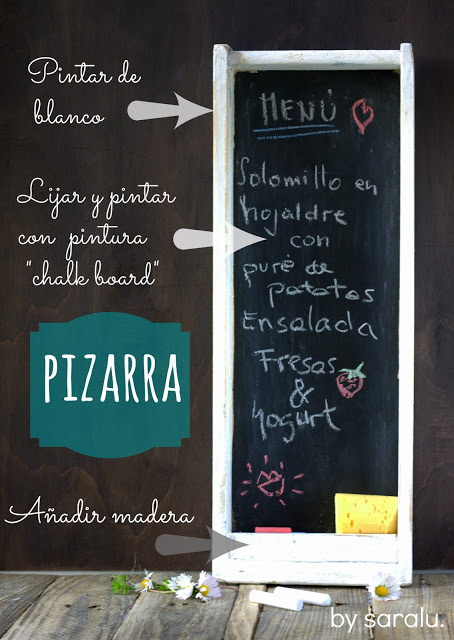 Pintar de
blanco
Lijar y pintar
con pintura
"chalk board"
PIZARRA
Añadir madera
MENÚ
Solomillo en
hojaldre
con
puré de
patatas
Ensalada
Fresas
&
Yogurt
by saralu.